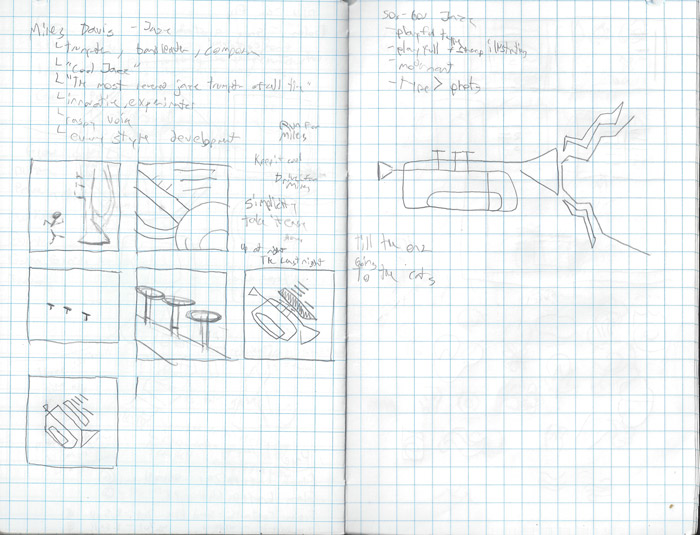 Miles Davis - Jazz
trumpeter, bandleader, composer
"Cool Jazz"
"The most revered jazz trumpeter of all time"
innovative, experimenter
raspy voice
every style development
Run for
Miles
Keep it cool
Miles
Simplicity
take it ease
4 at night
The Last night
50s-60s Jazz
- playful type
- playful + sharp illustrating
- movement
- type > photos
till the one
going
to the cats